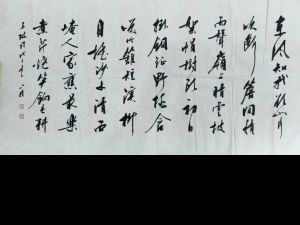 東風知我欲山行
吹斷簷間積
雨聲嶺上晴雲披
絮帽樹頭初日
掛銅鉦野桃含
笑竹籬短溪柳
自搖沙水清西
崦人家應最樂
煮芹燒筍餉春耕
東坡詩